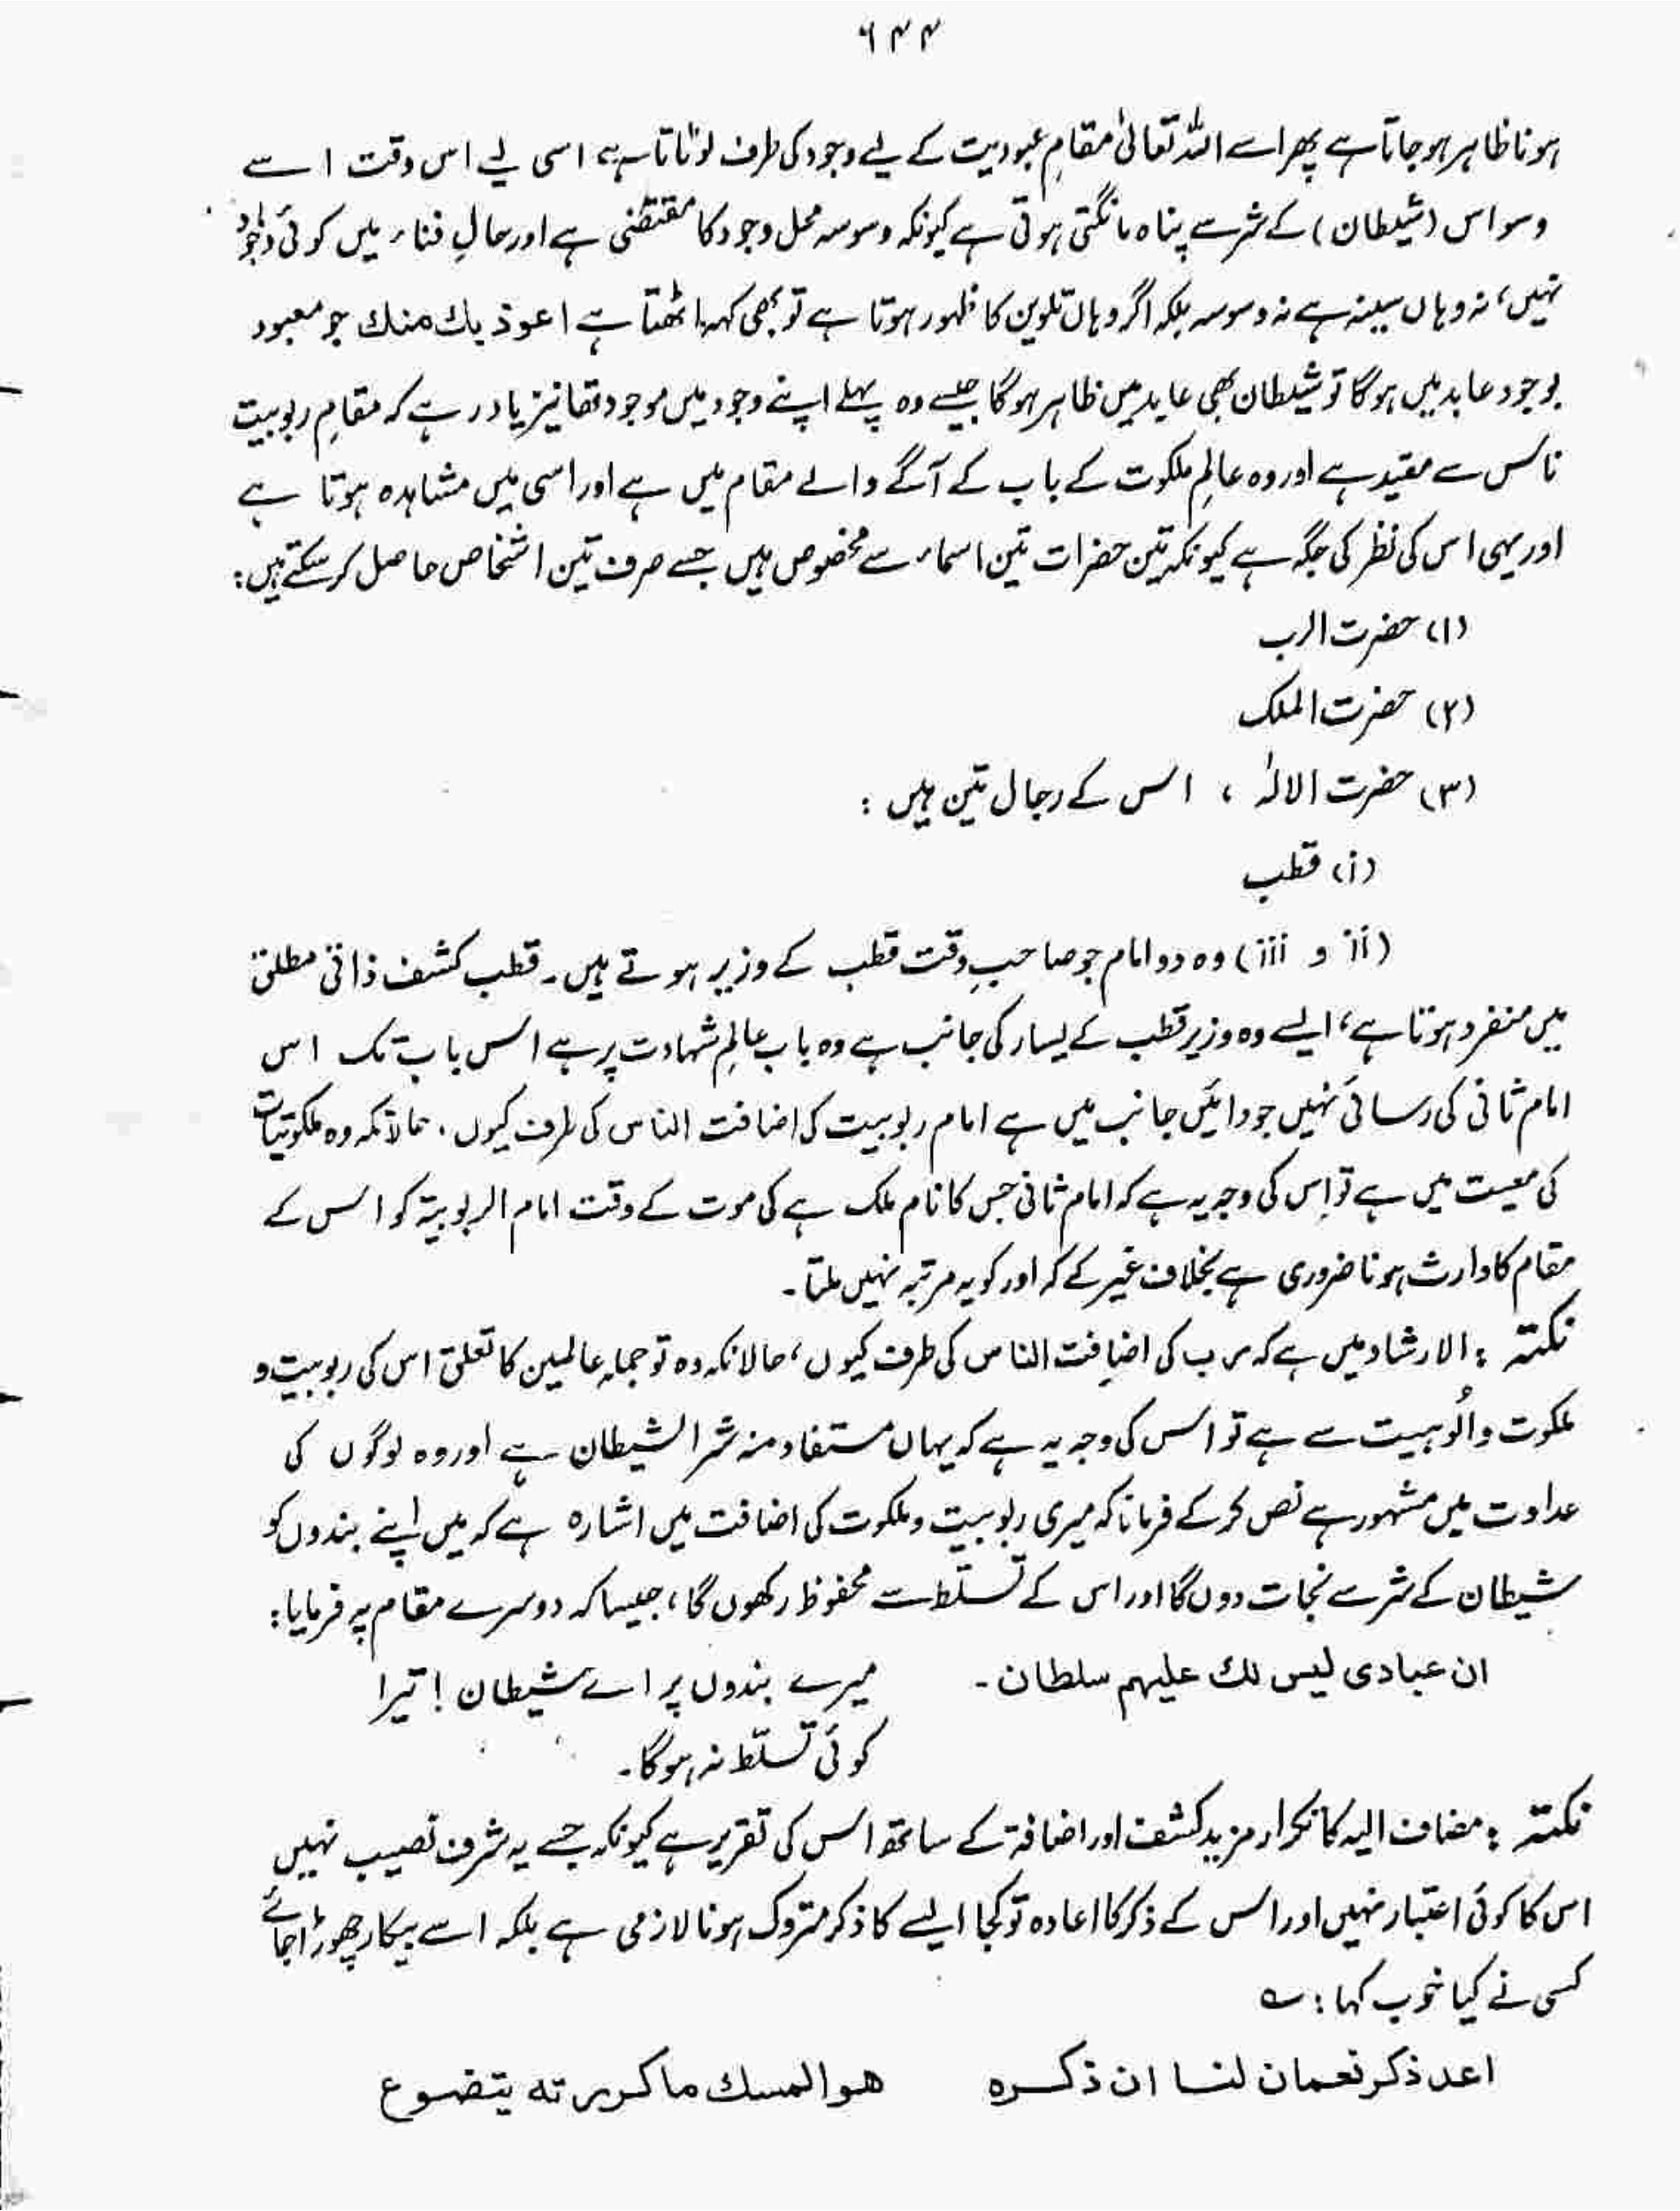 ۶۴۴
ہونا ظاہر ہو جاتا ہے پھر اسے اللہ تعالیٰ مقامِ عبودیت کے لیے وجود کی طرف لوٹاتا ہے اسی لیے اس وقت اسے
وسواس (شیطان) کے شر سے پناہ مانگتی ہوتی ہے کیونکہ وسوسہ محل وجود کا مقتضی ہے اور حالِ فناء میں کوئی وجود
نہیں، نہ وہاں سینہ ہے نہ وسوسہ بلکہ اگر وہاں تلوین کا ظہور ہوتا ہے تو بھی کہہ اٹھتا ہے اعوذ بك منك جو معبود
بوجود عابد میں ہوگا تو شیطان بھی عابد میں ظاہر ہوگا جیسے وہ پہلے اپنے وجود میں موجود تھا نیز یاد رہے کہ مقامِ ربوبیت
ناس سے مقید ہے اور وہ عالمِ ملکوت کے باب کے آگے والے مقام میں ہے اور اسی میں مشاہدہ ہوتا ہے
اور یہی اس کی نظر کی جگہ ہے کیونکہ تین حضرات تین اسماء سے مخصوص ہیں جسے صرف تین اشخاص حاصل کر سکتے ہیں:
(۱) حضرت الرب
(۲) حضرت الملک
(۳) حضرت الالٰہ ، اس کے رجال تین ہیں :
(i) قطب
(ii و iii) وہ دو امام جو صاحبِ وقت قطب کے وزیر ہوتے ہیں۔ قطب کشف ذاتی مطلق
میں منفرد ہوتا ہے، ایسے وہ وزیر قطب کے یسار کی جانب ہے وہ بابِ عالمِ شہادت پر ہے اس باب تک اس
امام ثانی کی رسائی نہیں جو دائیں جانب میں ہے امام ربوبیت کی اضافت الناس کی طرف کیوں، حالانکہ وہ ملکوتیات
کی معیت میں ہے تو اِس کی وجہ یہ ہے کہ امام ثانی جس کا نام ملک ہے کی موت کے وقت امام الربوبیۃ کو اس کے
مقام کا وارث ہونا ضروری ہے بخلاف غیر کے کہ اور کو یہ مرتبہ نہیں ملتا۔
نکتہ : الارشاد میں ہے کہ رب کی اضافت الناس کی طرف کیوں، حالانکہ وہ تو جملہ عالمین کا تعلق اس کی ربوبیت و
ملکوت و اُلوہیت سے ہے تو اس کی وجہ یہ ہے کہ یہاں مستفاد منہ شر الشیطان ہے اور وہ لوگوں کی
عداوت میں مشہور ہے نص کر کے فرمانا کہ میری ربوبیت و ملکوت کی اضافت میں اشارہ ہے کہ میں اپنے بندوں کو
شیطان کے شر سے نجات دوں گا اور اس کے تسلّط سے محفوظ رکھوں گا، جیسا کہ دوسرے مقام پر فرمایا:
ان عبادی لیس لك علیہم سلطان۔ میرے بندوں پر اے شیطان! تیرا
کوئی تسلّط نہ ہوگا۔
نکتہ : مضاف الیہ کا تکرار مزید کشف اور اضافۃ کے ساتھ اس کی تقریر ہے کیونکہ جسے یہ شرف نصیب نہیں
اس کا کوئی اعتبار نہیں اور اس کے ذکر کا اعادہ تو کجا ایسے کا ذکر متروک ہونا لازمی ہے بلکہ اسے بیکار چھوڑا جائے
کسی نے کیا خوب کہا : ؎
اعد ذکر نعمان لنا ان ذکرہ ھو المسك ما کررته یتضوع